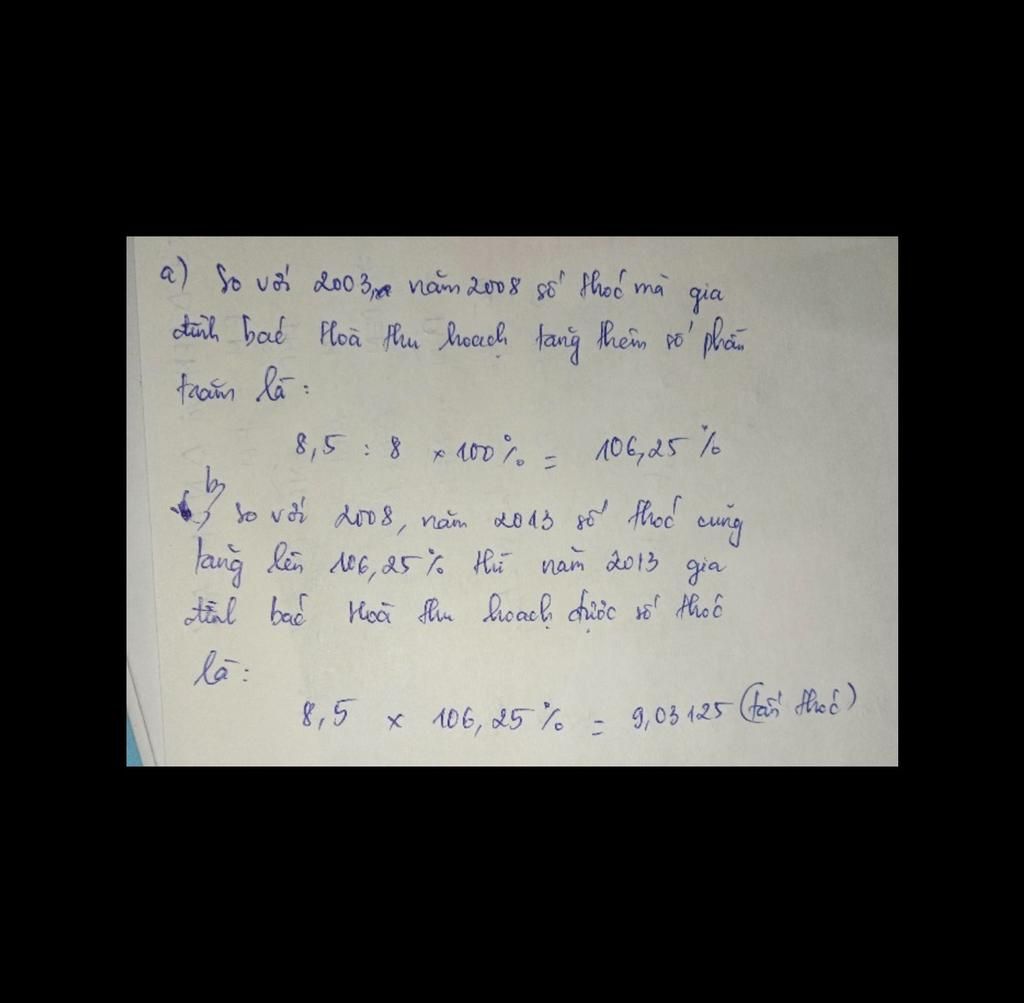 a) So với 2003, năm 2008 số thóc mà gia
đình bác Hoà thu hoạch tăng thêm số phần
trăm là :
8,5 : 8 × 100% = 106,25 %
b) So với 2008, năm 2013 số thóc cũng
tăng lên 106,25% thì năm 2013 gia
đình bác Hoà thu hoạch được số thóc
là :
8,5 × 106,25 % = 9,03125 (tấn thóc)